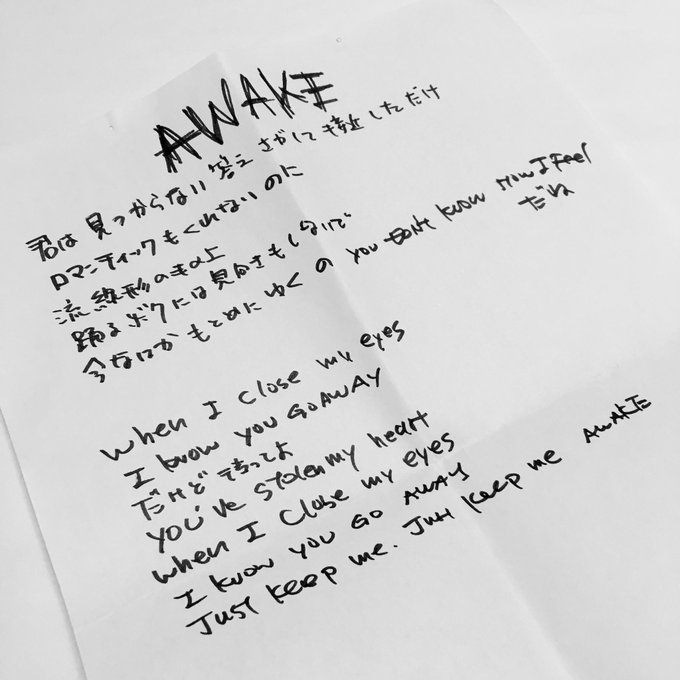 AWAKE
君は見つからない答えさがして接近しただけ
ロマンティックもくれないのに
流線形のその上
踊るボクには見向きもしないで
今なにかもとめにゆくの YOU DON'T KNOW HOW I FEEL
だね
When I close my eyes
I know you GO AWAY
だけど待ってよ
YOU'VE stolen my heart
When I close my eyes
I know you GO AWAY
Just keep me. Just keep me AWAKE